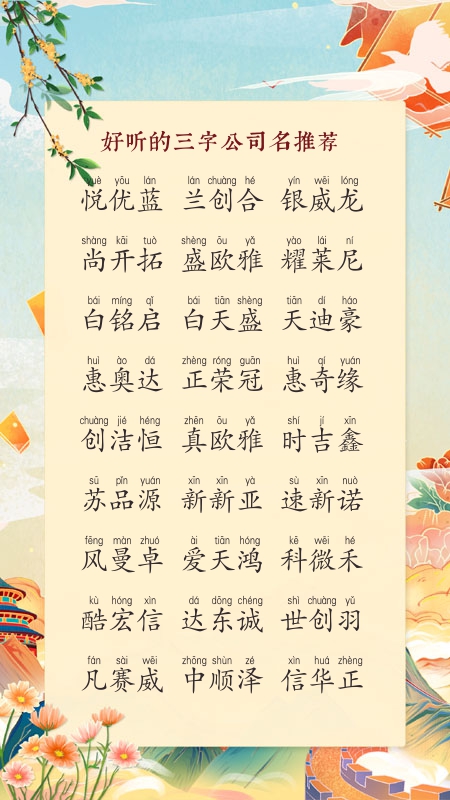 好听的三字公司名推荐
yuè yōu lán lán chuàng hé yín wēi lóng
悦优蓝 兰创合 银威龙
shàng kāi tuò shèng ōu yǎ yào lái ní
尚开拓 盛欧雅 耀莱尼
bái míng qǐ bái tiān shèng tiān dí háo
白铭启 白天盛 天迪豪
huì ào dá zhèng róng guān huì qí yuán
惠奥达 正荣冠 惠奇缘
chuàng jié héng zhēn ōu yǎ shí jí xīn
创洁恒 真欧雅 时吉鑫
sū pǐn yuán xīn xīn yà sù xīn nuò
苏品源 新新亚 速新诺
fēng màn zhuó ài tiān hóng kē wēi hé
风曼卓 爱天鸿 科微禾
kù hóng xìn dá dōng chéng shì chuàng yǔ
酷宏信 达东诚 世创羽
fán sài wēi zhōng shùn zé xìn huá zhèng
凡赛威 中顺泽 信华正